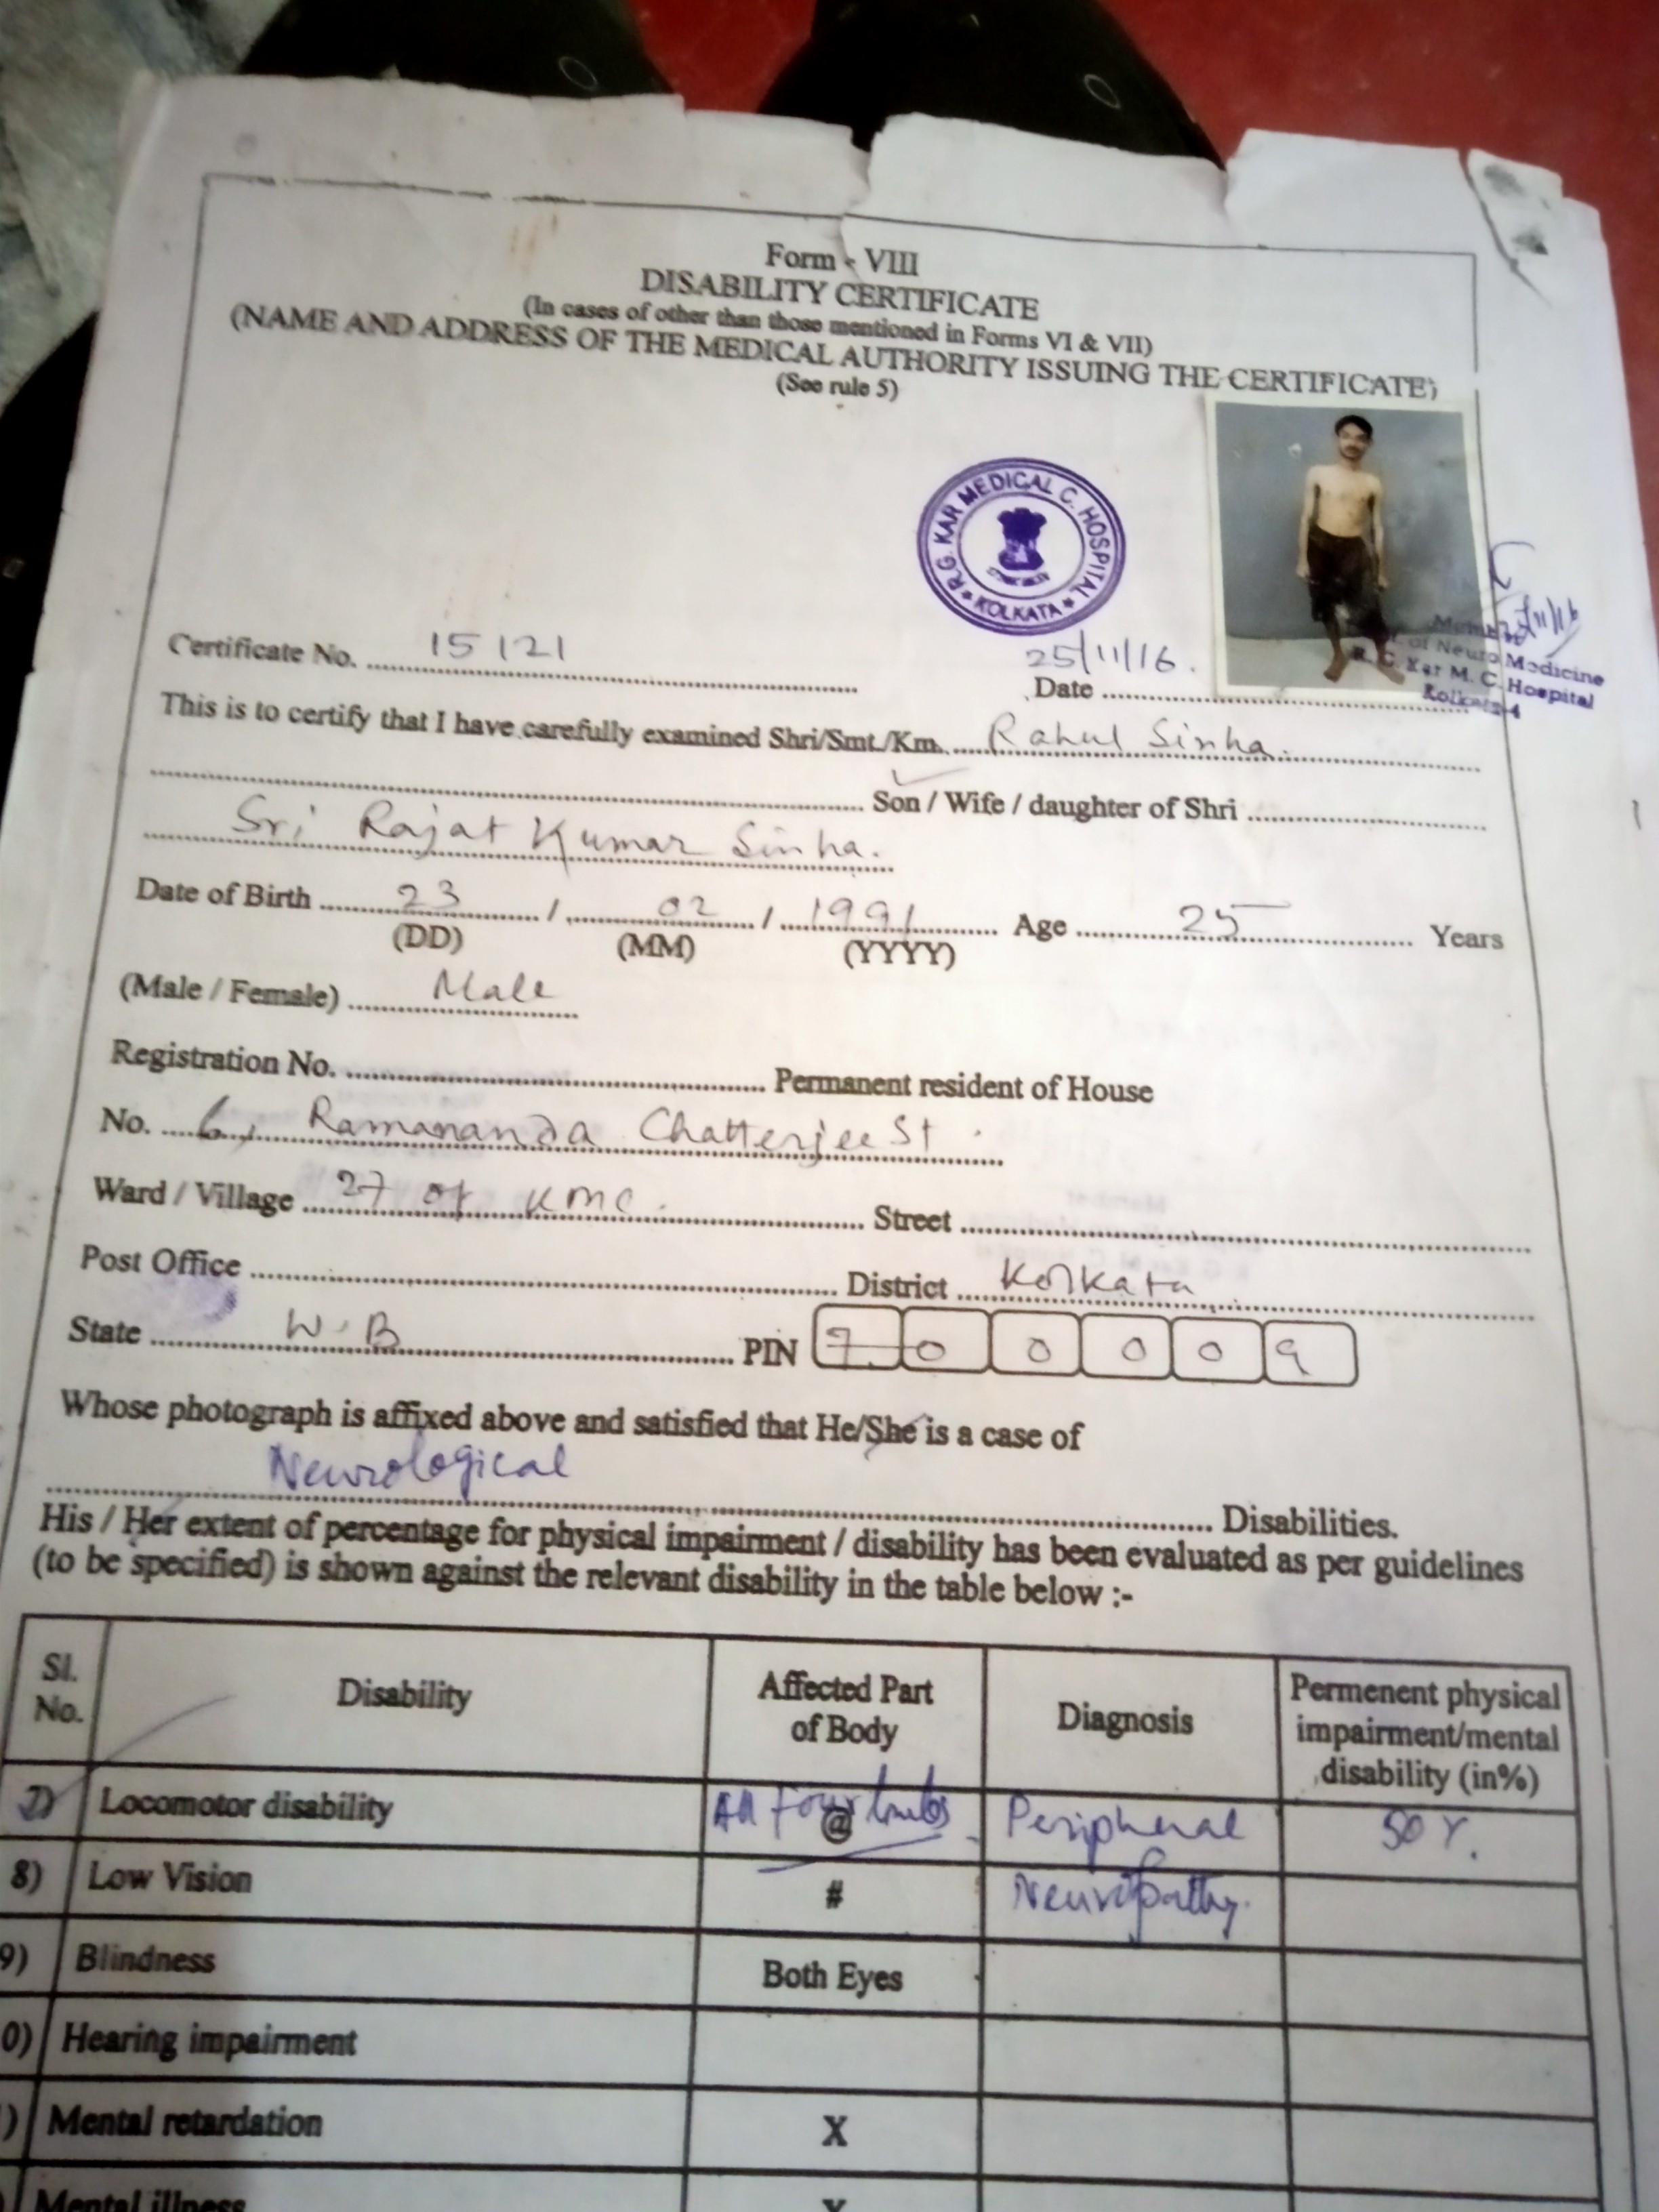 Form - VIII
DISABILITY CERTIFICATE
(In cases of other than those mentioned in Forms VI & VII)
(NAME AND ADDRESS OF THE MEDICAL AUTHORITY ISSUING THE CERTIFICATE)
(See rule 5)
R.G. KAR MEDICAL C. HOSPITAL
★ KOLKATA ★
Certificate No. 15121
25/11/16.
Date
of Neuro Medicine
R. G. Kar M. C. Hospital
Kolkata-4
This is to certify that I have carefully examined Shri/Smt./Km. Rahul Sinha.
Son / Wife / daughter of Shri
Sri Rajat Kumar Sinha.
Date of Birth 23 / 02 / 1991 Age 25 Years
(DD) (MM) (YYYY)
(Male / Female) Male
Registration No. Permanent resident of House
No. 6, Ramananda Chatterjee St.
Ward / Village 27 of KMC. Street
Post Office District Kolkata
State W.B PIN 700009
Whose photograph is affixed above and satisfied that He/She is a case of
Neurological
Disabilities.
His / Her extent of percentage for physical impairment / disability has been evaluated as per guidelines
(to be specified) is shown against the relevant disability in the table below :-
Sl. No. Disability Affected Part of Body Diagnosis Permenent physical impairment/mental disability (in%)
Locomotor disability All four limbs @ Peripheral 50%.
8) Low Vision # Neuropathy.
9) Blindness Both Eyes
0) Hearing impairment
) Mental retardation X
) Mental illness X